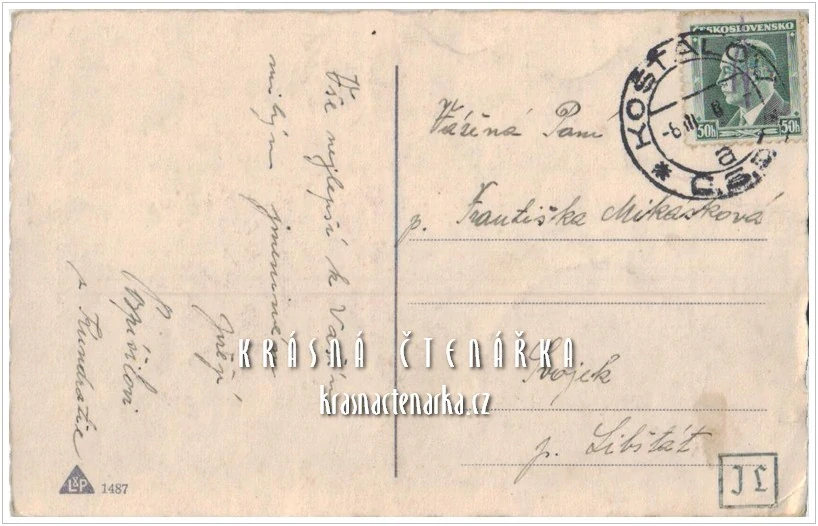 Vše nejlepší k Vašim
milým jmeninám
přejí
z Kundratic
Vážená Paní
p. Františka Mikasková
Svojek
p. Libštát
ČESKOSLOVENSKO
50h 50h
KOŠŤÁLOV
Č.S.R.
KRÁSNÁ ČTENÁŘKA
krasnactenarka.cz
LP 1487
JL